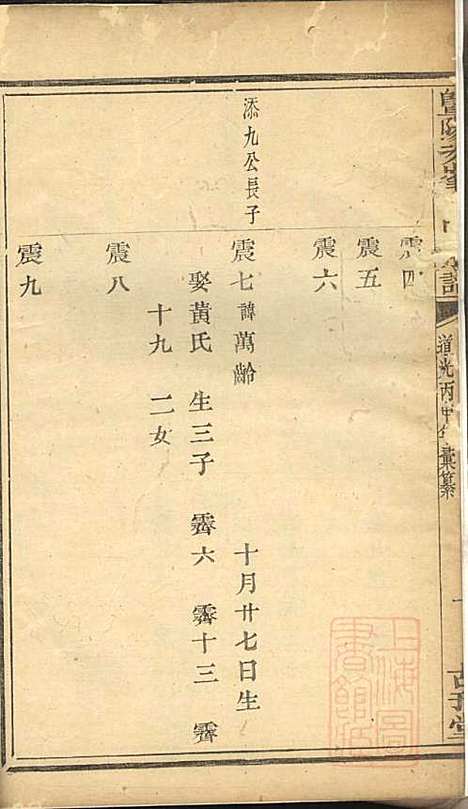 暨陽
道光丙申年彙纂
震四
震五
震六
添九公長子
震七 諱萬齡 十月廿七日生
娶黃氏 生三子 霽六 霽十三 霽
十九 二女
震八
震九
上海圖書館藏